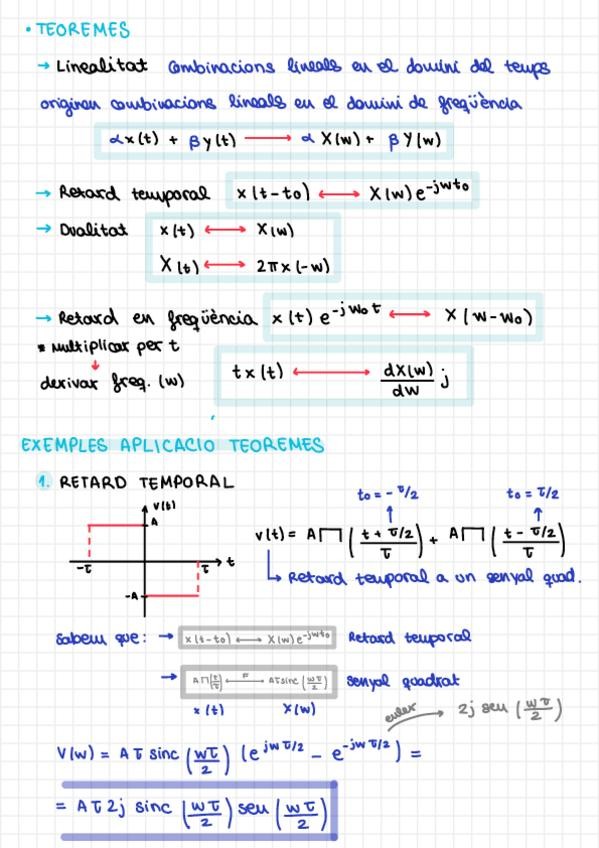 • TEOREMES
→ Linealitat Combinacions lineals en el domini del temps
originen combinacions lineals en el domini de freqüència
αx(t) + βy(t) ⟶ αX(w) + βY(w)
→ Retard temporal x(t-to) ⟷ X(w)e^-jwto
→ Dualitat x(t) ⟷ X(w)
X(t) ⟷ 2πx(-w)
→ Retard en freqüència x(t) e^-jwot ⟷ X(w-wo)
* Multiplicar per t
↓
derivar freq. (w) tx(t) ⟷ dX(w)/dw j
EXEMPLES APLICACIO TEOREMES
1. RETARD TEMPORAL
v(t)
A
-τ τ t
-A
to = -τ/2 to = τ/2
↑ ↑
v(t) = A⊓((t + τ/2)/τ) + A⊓((t - τ/2)/τ)
↳ Retard temporal a un senyal quad.
Sabem que: → x(t-to) ⟷ X(w)e^-jwto Retard temporal
→ A⊓(t/τ) ⟷F Aτsinc(wτ/2) senyal quadrat
x(t) X(w)
euler → 2j seu (wτ/2)
V(w) = Aτ sinc (wτ/2) (e^jwτ/2 - e^-jwτ/2) =
= Aτ2j sinc (wτ/2) seu (wτ/2)